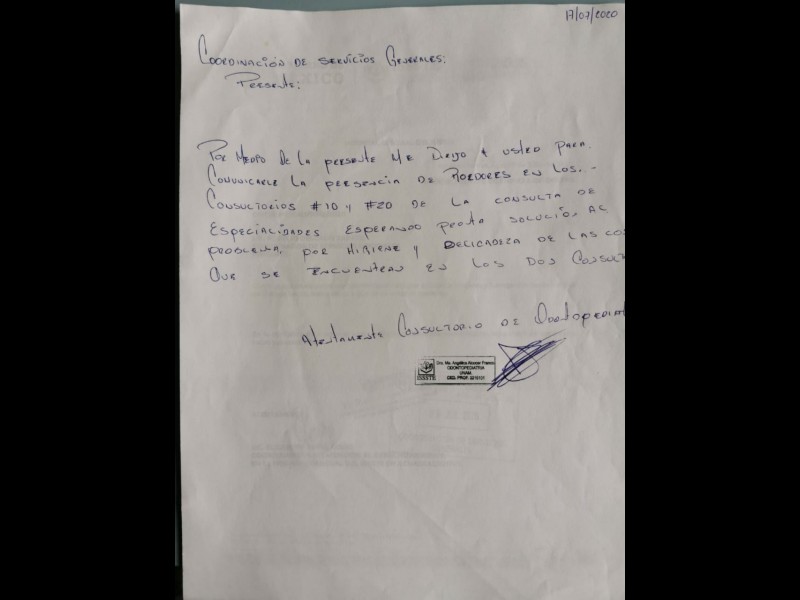 17/07/2020
COORDINACIÓN DE SERVICIOS GENERALES:
PRESENTE:
POR MEDIO DE LA PRESENTE ME DIRIJO A USTED PARA
COMUNICARLE LA PRESENCIA DE ROEDORES EN LOS.-
CONSULTORIOS #10 y #20 DE LA CONSULTA DE
ESPECIALIDADES ESPERANDO PRONTA SOLUCIÓN AL
PROBLEMA, POR HIGIENE Y DELICADEZA DE LAS CO
QUE SE ENCUENTRAN EN LOS DOS CONSULT
ATENTAMENTE CONSULTORIO DE ODONTOPEDIAT
Dra. Ma. Angélica Alcocer Franco
ODONTOPEDIATRIA
UNAM.
CED. PROF.